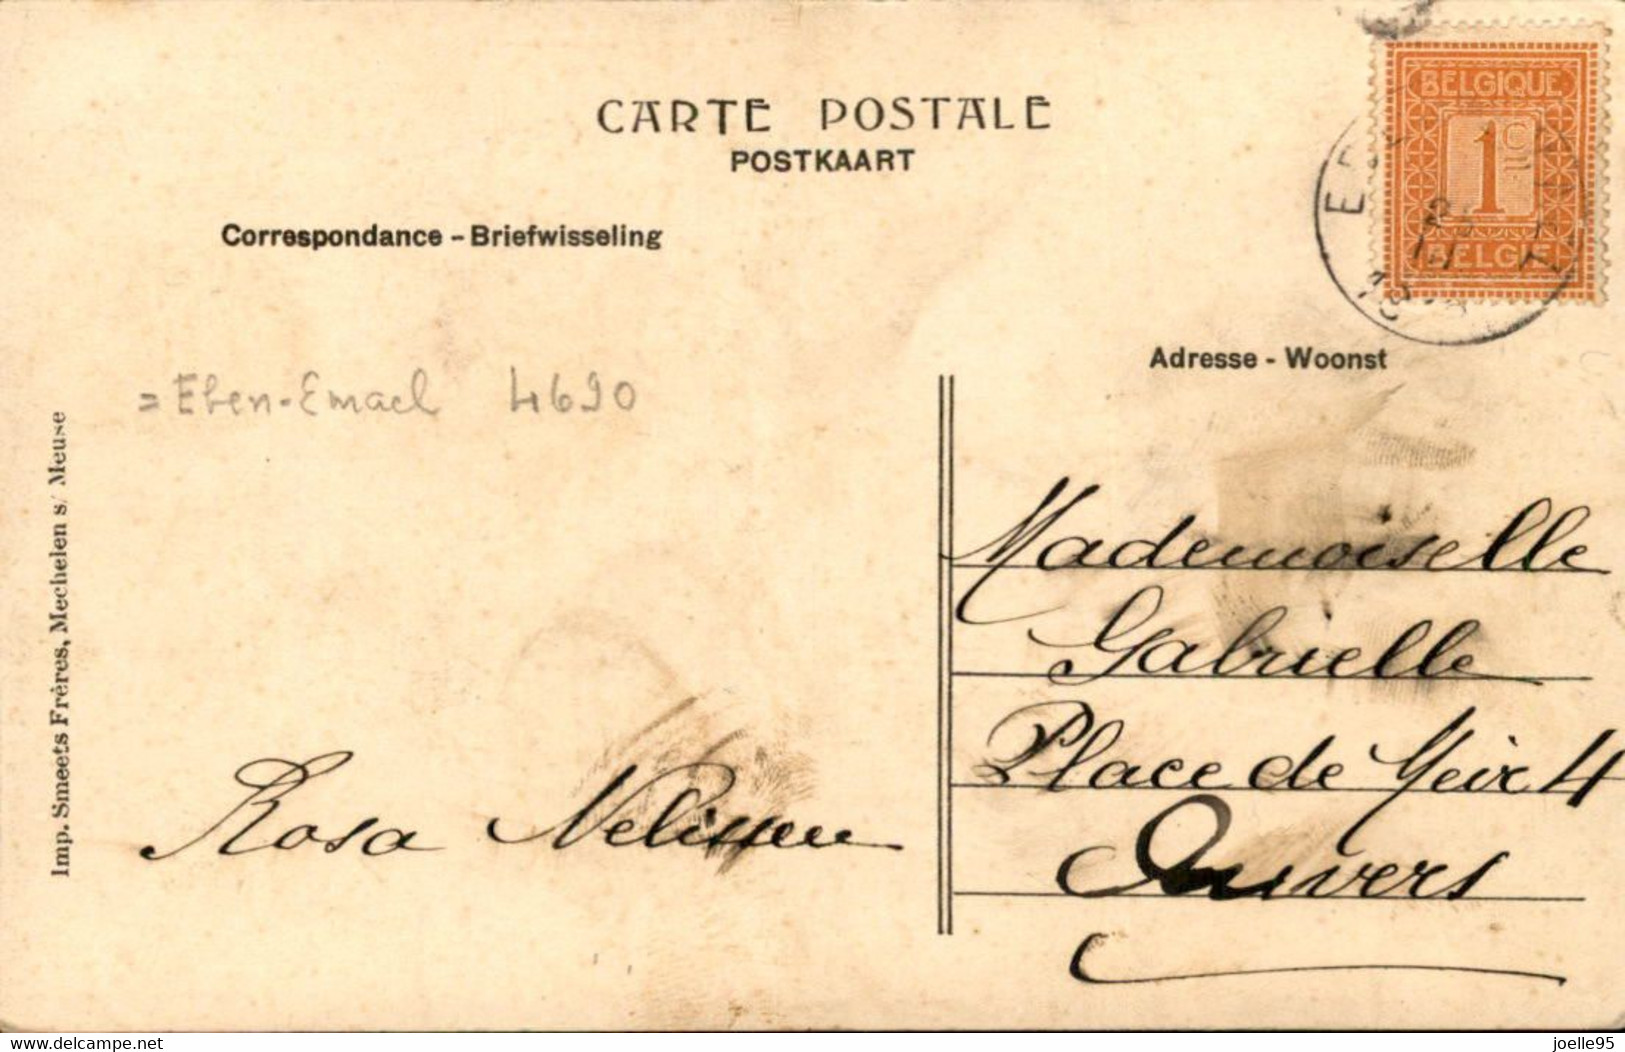 CARTE POSTALE
POSTKAART
Correspondance - Briefwisseling
BELGIQUE
1 C
BELGIE
Adresse - Woonst
= Eben-Emael 4690
Imp. Smeets Frères, Mechelen s/ Meuse
Mademoiselle
Gabrielle
Place de Meir 4
Anvers
Rosa Nelissen
www.delcampe.net
joelle95